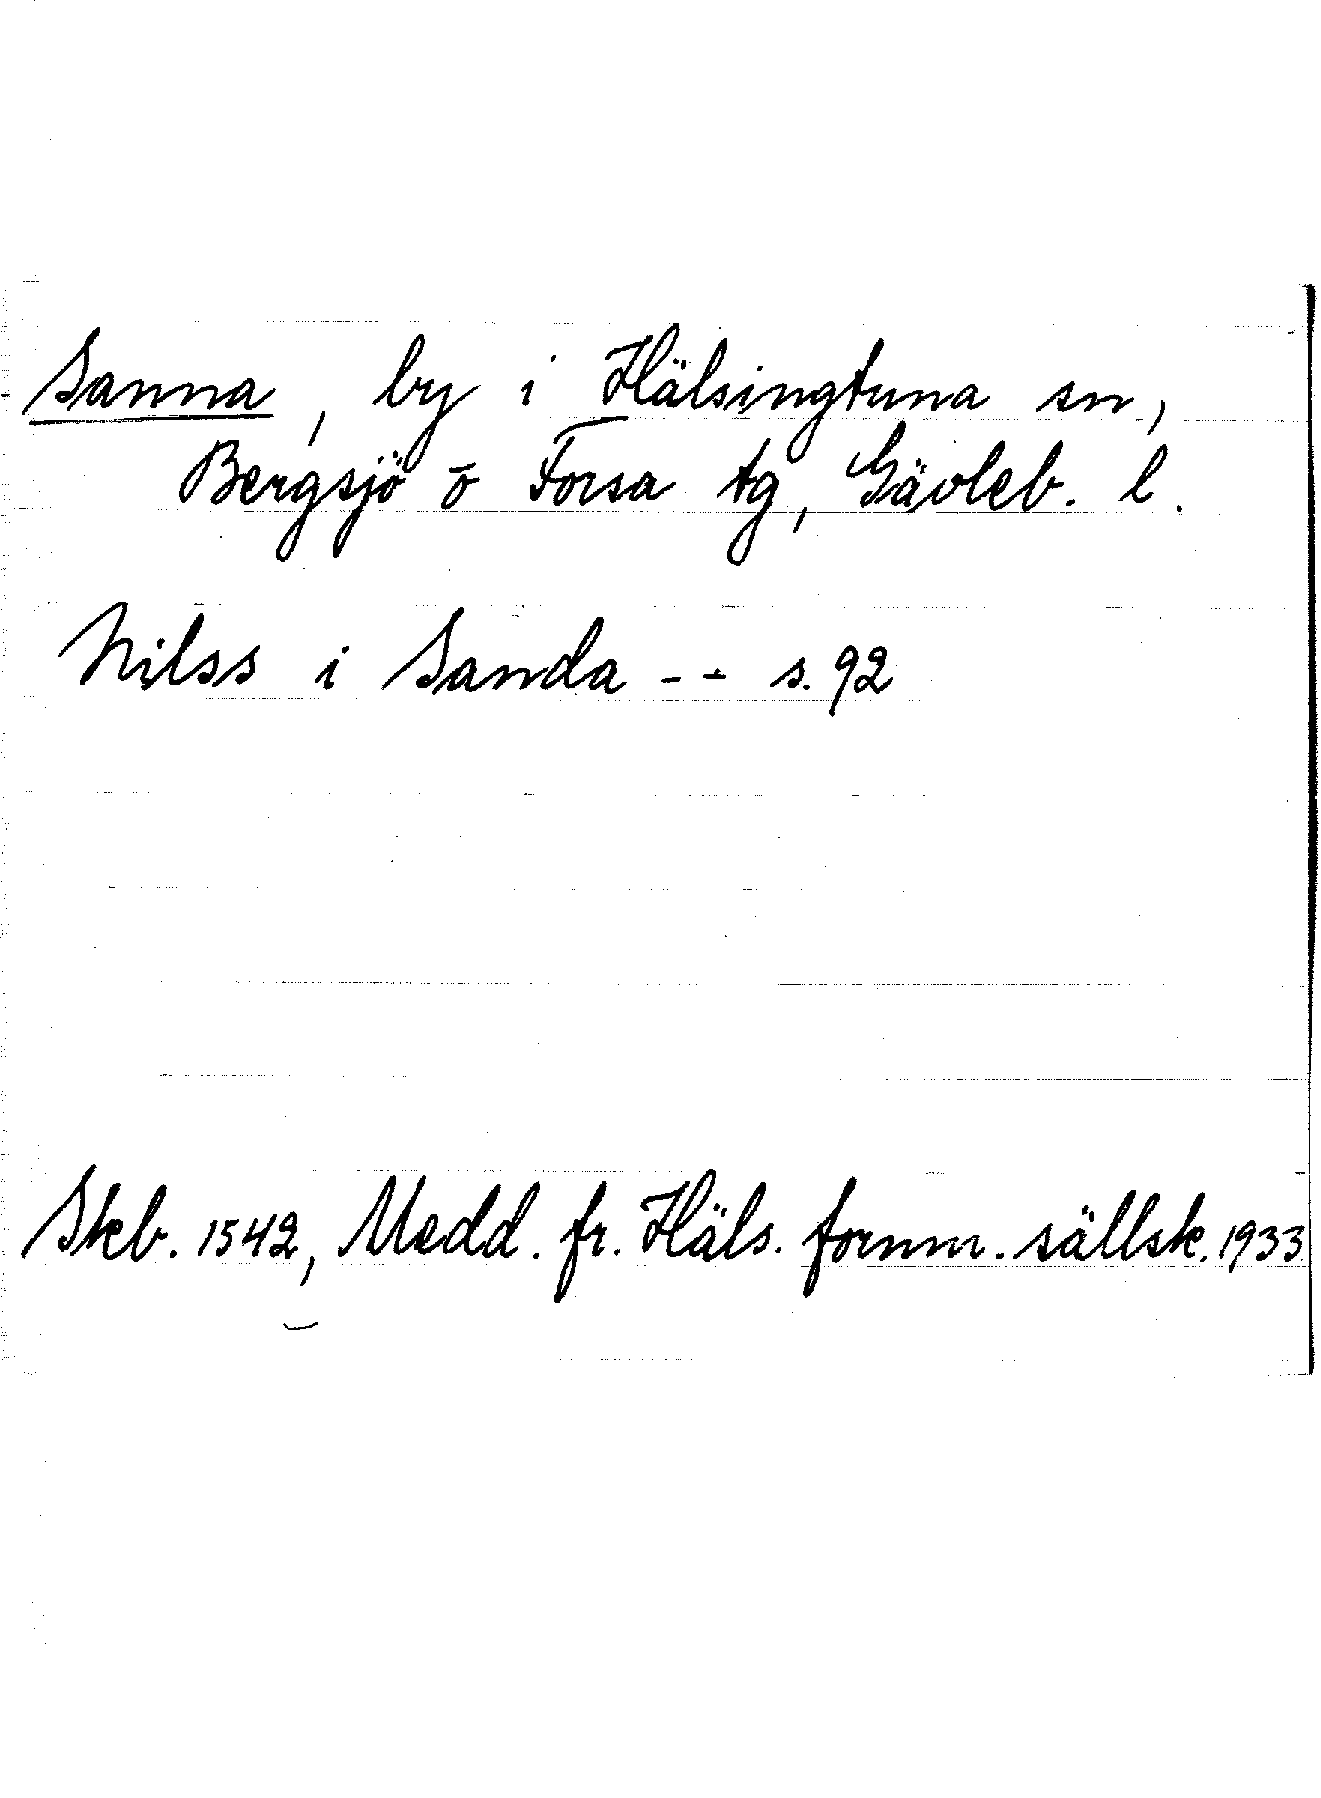 Sanna, by i Hälsingtuna sn,
Bergsjö o Forsa tg, Gävleb. l.
Nilss i Sanda -- s. 92
Skb. 1542, Medd. fr. Häls. fornm. sällsk. 1933